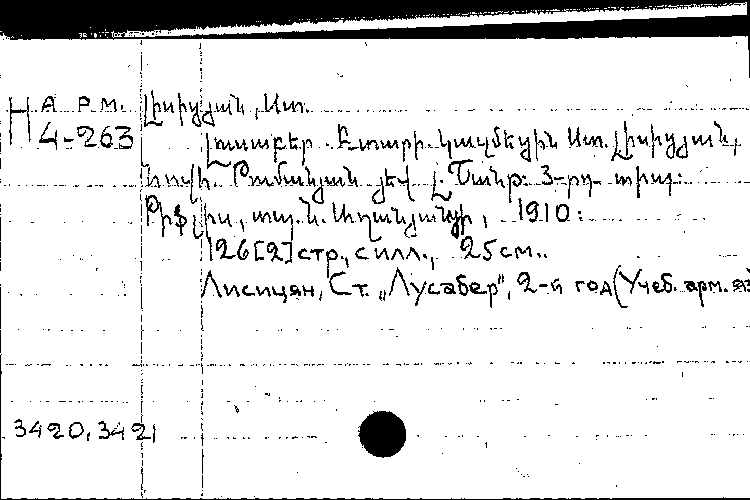 А Р М.
Н 4-263
Լիսիցյան, Ստ.
Լուսաբեր. Բ տարի. կազմեցին Ստ. Լիսիցյան,
Հովհ. Թումանյան յեվ Լ. Շանթ: 3-րդ տիպ:
Թիֆլիս, տպ. Ն. Աղանյանցի, 1910:
126[2]стр., силл., 25см..
Лисицян, Ст. „Лусабер", 2-й год (Учеб. арм. яз
3420, 3421